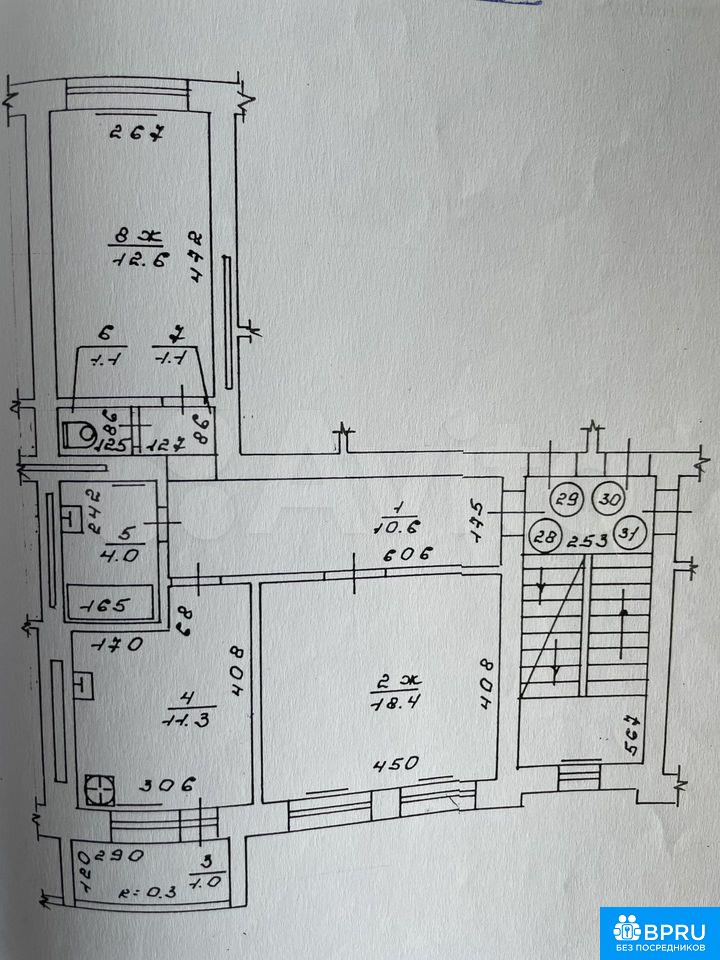 267
8 ж
12.6
472
6
1.1
7
1.1
86
125
127
86
242
5
4.0
165
1
10.6
606
175
29
30
28
31
253
170
68
408
4
11.3
306
2 ж
18.4
408
450
567
290
120
к=0.3
3
1.0
BPRU
БЕЗ ПОСРЕДНИКОВ